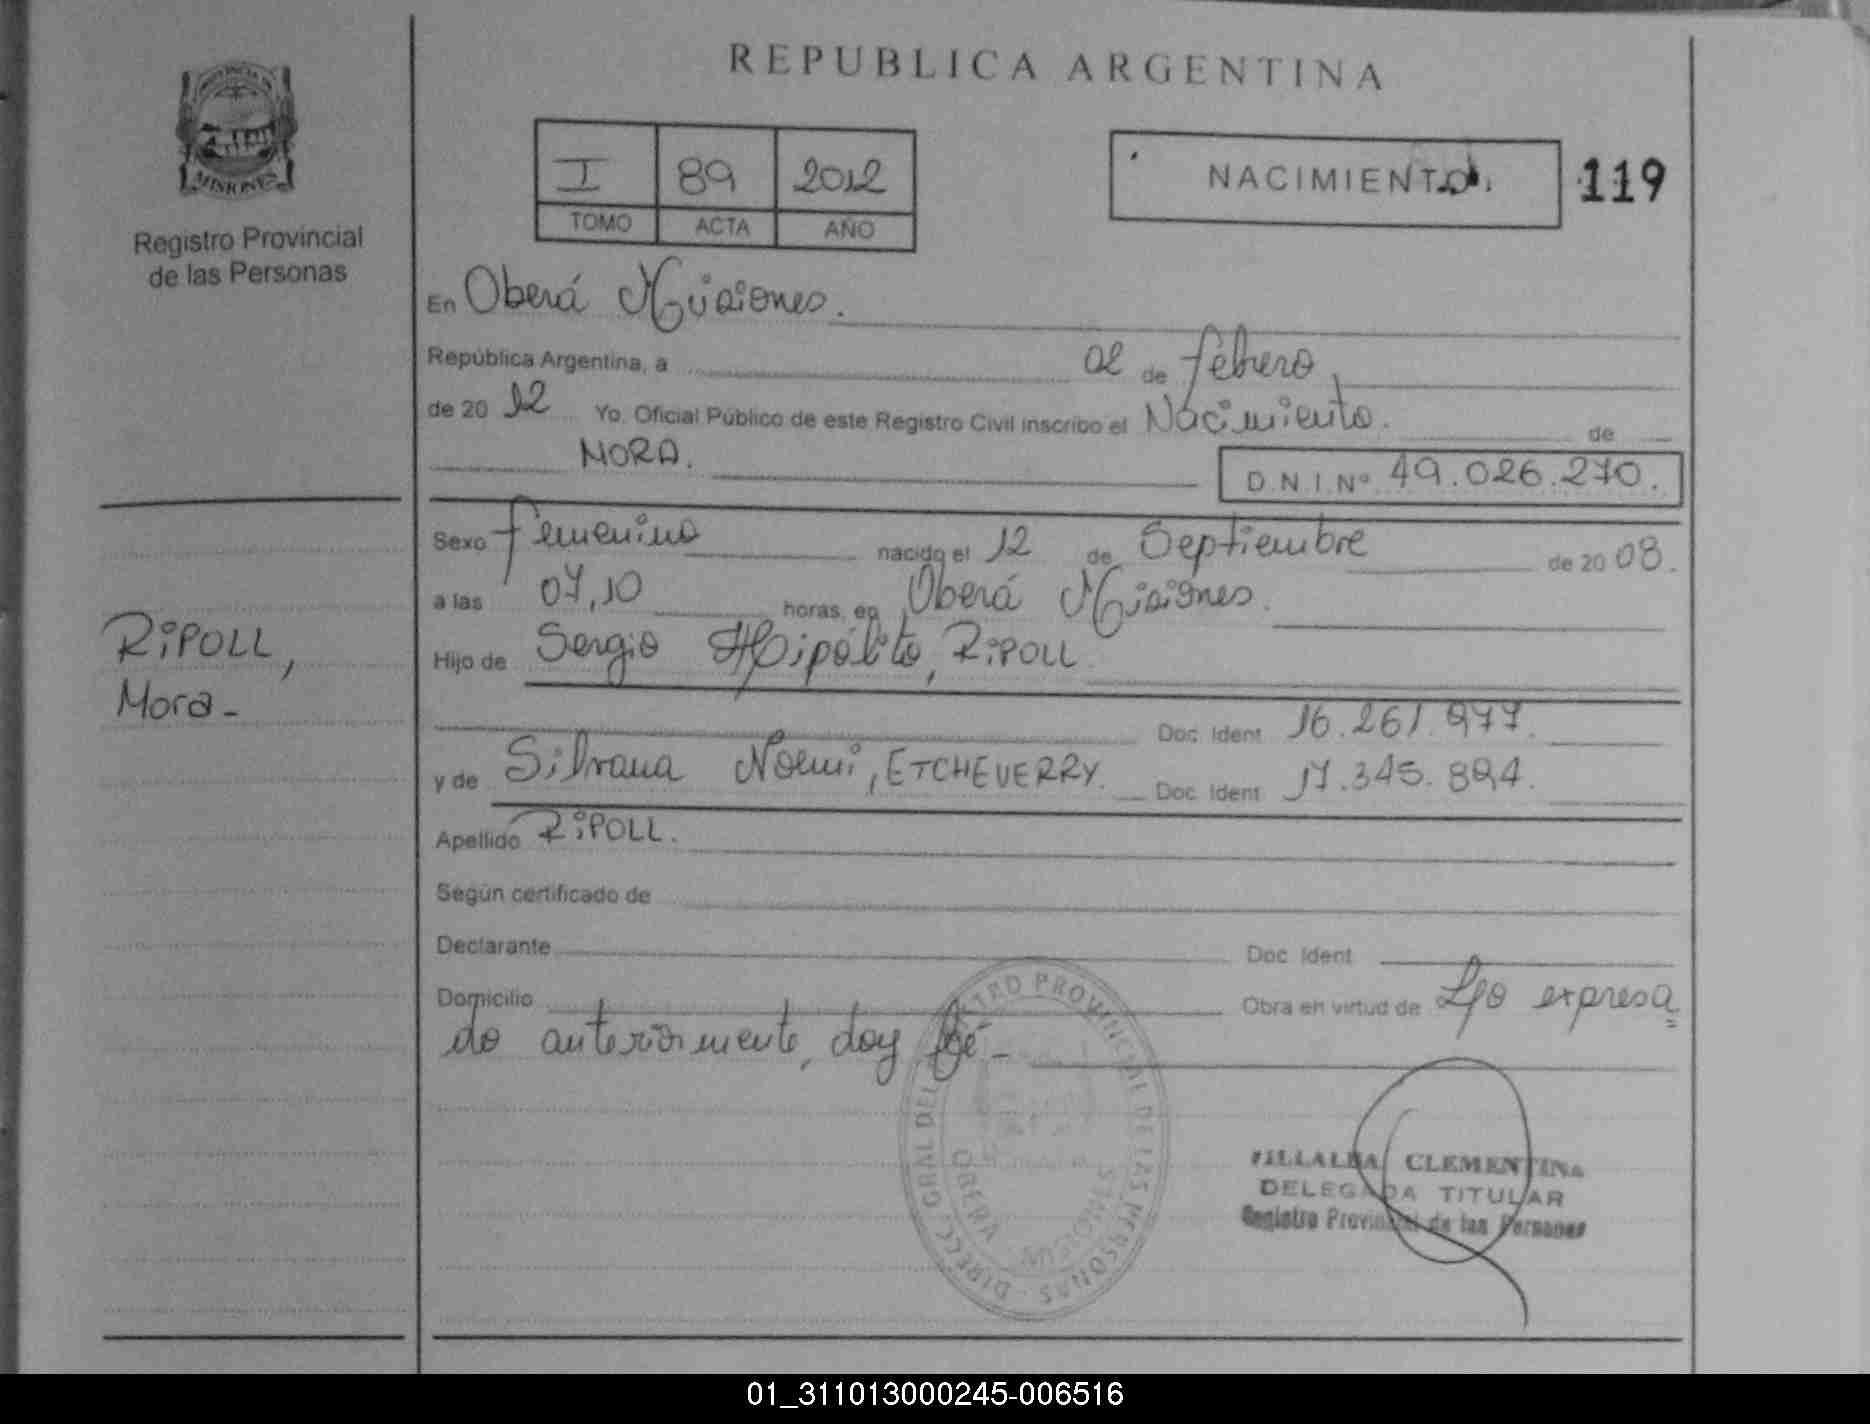 REPUBLICA ARGENTINA
PROVINCIA DE
MISIONES
Registro Provincial
de las Personas
I 89 2012
TOMO ACTA AÑO
NACIMIENTO.
119
En Oberá Misiones.
República Argentina, a 02 de febrero
de 20 12 Yo, Oficial Público de este Registro Civil inscribo el Nacimiento. de
MORA.
D.N.I.Nº 49.026.270.
Sexo femenino nacido el 12 de Septiembre de 20 08.
a las 07,10 horas, en Oberá Misiones.
Hijo de Sergio Hipólito, RiPOLL
Doc. Ident. 16.261.977.
y de Silvana Noemi, ETCHEVERRY. Doc. Ident. 17.345.894.
Apellido RiPOLL.
Según certificado de
Declarante Doc. Ident.
Domicilio Obra en virtud de Lo expresa=
do anteriormente, doy fé-
RiPOLL,
Mora-
DIRECC. GRAL DEL REGISTRO PROVINCIAL DE LAS PERSONAS
OBERA MISIONES
VILLALBA CLEMENTINA
DELEGADA TITULAR
Registro Provincial de las Personas
01_311013000245-006516